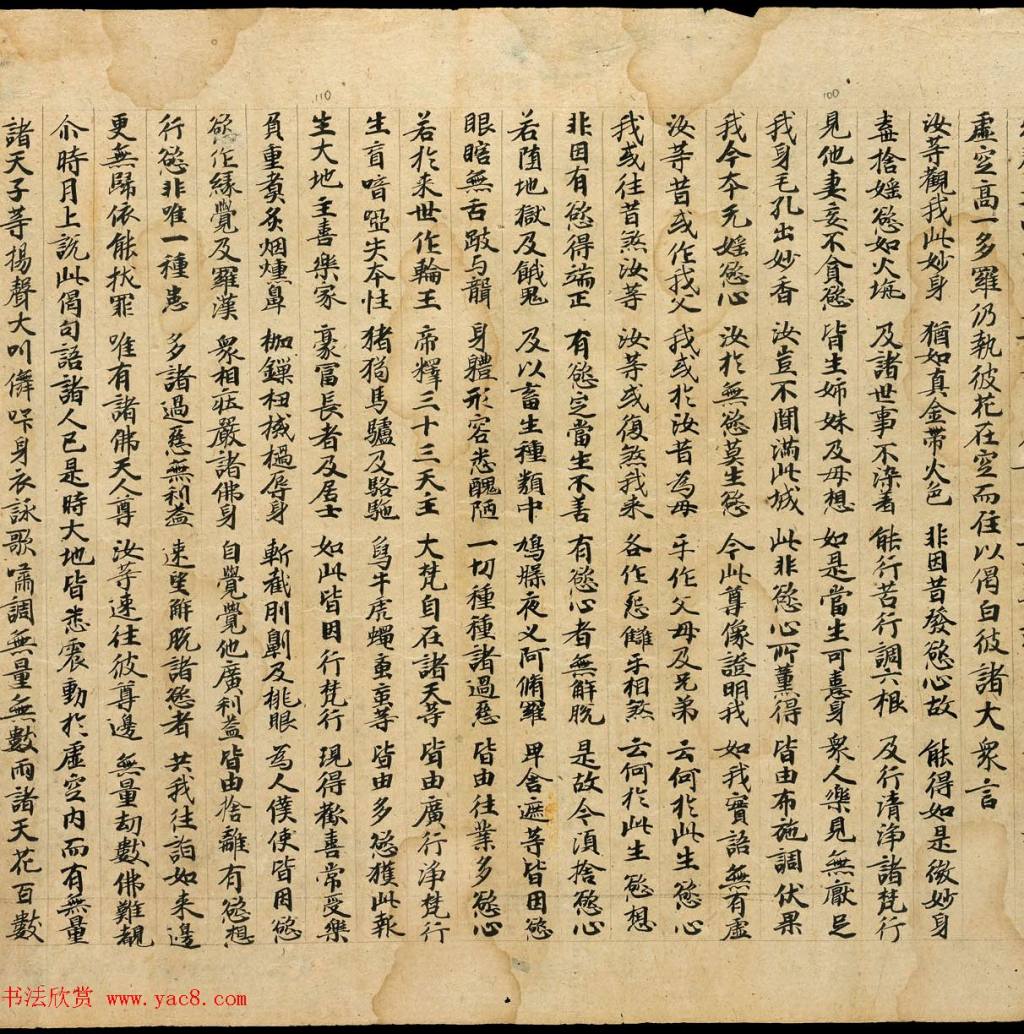 110
100
虛空高一多羅仍執彼花在空而住以偈白彼諸大衆言
汝等觀我此妙身 猶如真金帶火色 非因昔發慾心故 能得如是微妙身
盡捨婬慾如火坑 及諸世事不染著 能行苦行調六根 及行清淨諸梵行
見他妻妾不貪慾 皆生姊妹及母想 如是當生可憙身 衆人樂見無厭足
我身毛孔出妙香 汝豈不聞滿此城 此非慾心所薰得 皆由布施調伏果
我今本无婬慾心 汝於無慾莫生慾 今此尊像證明我 如我實語無有虛
汝等昔或作我父 我或於汝昔為母 乎作父母及兄弟 云何於此生慾心
我或往昔煞汝等 汝等或復煞我来 各作怨讎乎相煞 云何於此生慾想
非因有慾得端正 有慾定當生不善 有慾心者無解脫 是故今須捨慾心
若墮地獄及餓鬼 及以畜生種類中 鳩槃夜义阿脩羅 毘舍遮等皆因慾
眼瞎無舌跛与躄 身體形容悉醜陋 一切種種諸過惡 皆由往業多慾心
若於来世作輪王 帝釋三十三天主 大梵自在諸天等 皆由廣行净梵行
生盲喑啞失本性 猪狗馬驢及駱駞 烏牛虎蠅蚉䖝等 皆由多慾獲此報
生大地主喜樂家 豪富長者及居士 如此皆因行梵行 現得歡喜常受樂
負重煑炙烟燻鼻 枷鏁杻械檛辱身 斬截刖劓及挑眼 為人僕使皆因慾
慾作緣覺及羅漢 衆相莊嚴諸佛身 自覺覺他廣利益 皆由捨離有慾想
行慾非唯一種患 多諸過惡無利益 速望解脫諸慾者 共我往詣如来邊
更無歸依能扶罪 唯有諸佛天人尊 汝等速往彼尊邊 無量劫數佛難覩
尒時月上說此偈句語諸人已是時大地皆悉震動於虛空内而有無量
諸天子等揚聲大叫儛吽身衣詠歌嘯調無量無數雨諸天花百數
书法欣赏 www.yac8.com